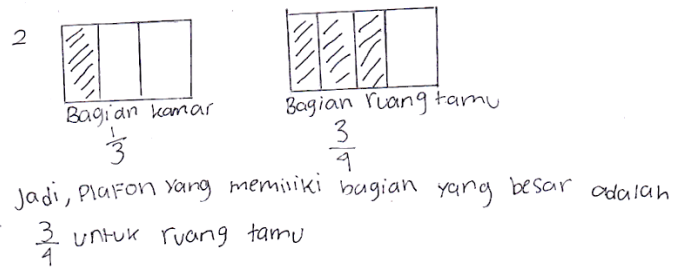 2
Bagian kamar
1/3
Bagian ruang tamu
3/4
Jadi, Plafon yang memiliki bagian yang besar adalah
3/4 untuk ruang tamu